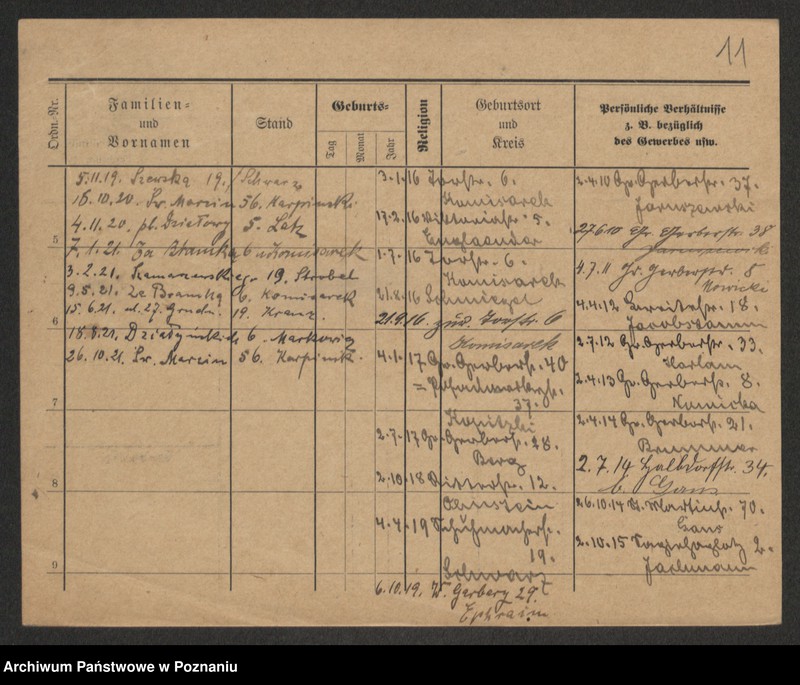 11
Ordn.-Nr.
Familien-
und
Vornamen
Stand
Geburts-
Tag
Monat
Jahr
Religion
Geburtsort
und
Kreis
Persönliche Verhältnisse
z. B. bezüglich
des Gewerbes usw.
5.11.19. Szewska 19, Schwarz
16.10.20. Św. Marcin 56. Karpinski
4.11.20. pl. Działowy 5. Latz
7.1.21. 6 Komisarek
3.2.21. 19. Strobel
9.5.21. 6. Komisarek
15.6.21. ul. 27. Grudn. 19. Kranz.
18.8.21. Działyńskich 6. Markowig
26.10.21. Św. Marcin 56. Karpinsk.
5
6
7
8
9
3.1.16 6.
Komisarek
17.2.16 Viktoriastr. 5.
Englaender
1.7.16 6.
Komisarek
21.8.16 Schmiegel
21.9.16. zur. 6
Komisarek
4.1.17 Gr. Gerberstr. 40
37.
2.7.17 Gr. Gerberstr. 28.
Berg
2.10.18 Ritterstr. 12.
4.4.19 Schuhmacherstr.
19.
Schwarz
6.10.19. W. Gerbery 29.
Ephraim
2.4.10 Gr. Gerberstr. 37.
Jaruszewski
27.6.10 Gr. Gerberstr. 38
4.7.11 Gr. Gerberstr. 8
Nowicki
4.4.12 Breitestr. 18.
Jacobsamm
2.7.12 Gr. Gerberstr. 33.
Harlam
2.4.13 Gr. Gerberstr. 8.
2.4.14 Gr. Gerberstr. 21.
Brummer
2.7.14 Halbdorfstr. 34.
b. Gans
26.10.14 St. Martinstr. 70.
Gans
2.10.15 Sapiehaplatz 2.
Jachmann
Archiwum Państwowe w Poznaniu